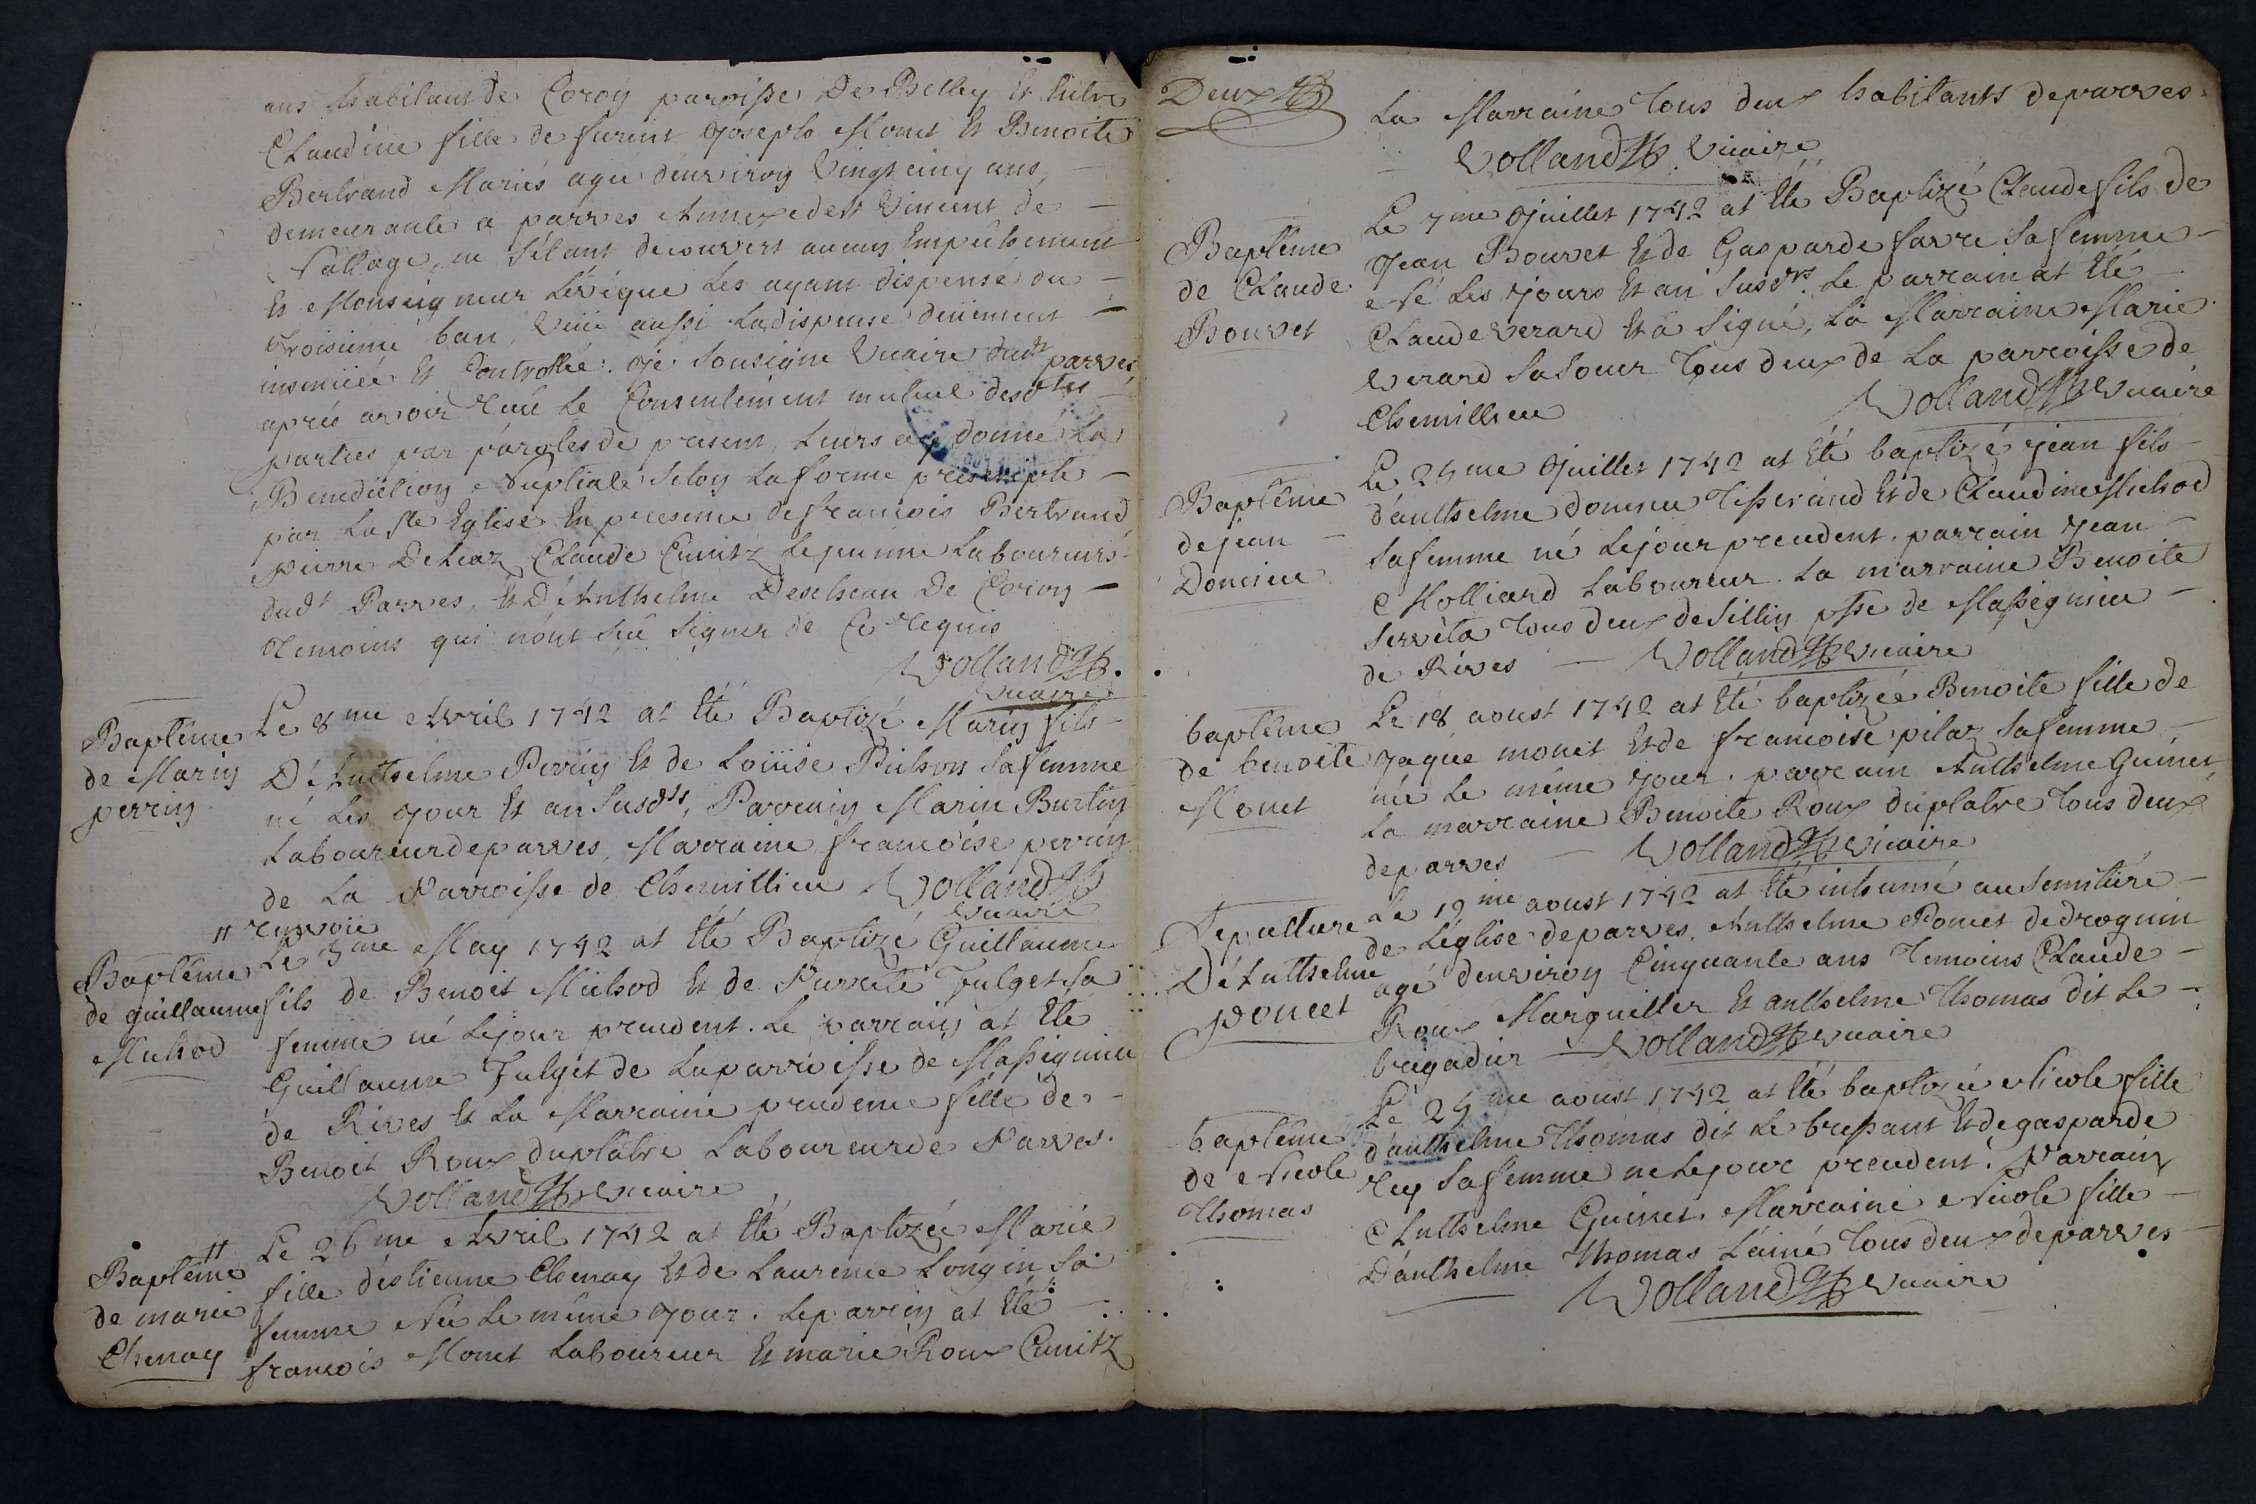 ans habitant de Coron paroisse De Belley Et Entre
Claudine fille de furent Joseph Monet Et Benoite
Bertrand Mariés agée d'environ Vingt cinq ans,
demeurante a parves Annexe de St Vincent de
Nattage, ne s'étant decouvert aucun Empêchement
Et Monseigneur L'évêque Les ayant dispensé du
troisieme ban, Veüe aussi La dispense deüement
insinüée Et Controllée: Je Sousigné Vicaire dudt parves,
aprés avoir reçû Le Consentement mutuel desdtes
parties par paroles de present, Leurs ay donné La
Benediction Nuptiale Selon La forme prescripte
par La Ste Eglise En presence de francois Bertrand
pierre Deleaz Claude Cunitz Le jeunne Laboureurs
dudt Parves, Et D'Anthelme Descheau De Coron
Temoins qui n'ont Sçû Signer de Ce requis
Volland
Vicaire
Baptême
de Marin
perrin
Le 8me Avril 1742 at Eté Baptizé Marin fils
D'Anthelme Perrin Et de Loüise Pichon Sa femme
né Les jour Et an Susdts, Parrain Marin Burtin
Laboureur de parves, Marraine francoise perrin
de La Parroisse de Chemillieu Volland
Vicaire
renvoie
Baptême
de guillaume
Michod
Le 3me May 1742 at Eté Baptizé Guillaume
fils de Benoit Michod Et de Pierrete Fulget Sa
femme né Le jour precedent. Le parrain at Eté
Guillaume Fulget de La parroisse de Massignieu
de Rives Et La Marraine prudence fille de
Benoit Roux duplâtre Laboureur de Parves.
Volland Vicaire
Baptême
de marie
Chenay
Le 26me Avril 1742 at Eté Baptizée Marie
fille d'estienne Chenay Et de Laurence Longin Sa
femme Née Le même jour. Le parrin at Eté
francois Monet Laboureur Et marie Roux Cunitz
Deux
La Marraine Tous deux habitants de parves.
Volland Vicaire
Baptême
de Claude
Bouvet
Le 7me Juillet 1742 at Eté Baptizé Claude fils de
Jean Bouvet Et de Gasparde favre Sa femme
Né Les jours Et an Susdts. Le parrain at Eté
Claude Verard Et à Signé, La Marraine Marie
Verard Sa Soeur Tous deux de La parroisse de
Chemillieu Volland Vicaire
Baptême
de jean
Doncieu
Le 24me Juillet 1742 at Eté baptizé jean fils
d'anthelme doncieu Tisserand Et de Claudine Michod
Sa femme né Le jour precedent. parrain Jean
Molliard Laboureur. La marraine Benoite
Servéta Tous deux de Sillin psse de Massegnieu
de Rives Volland Vicaire
baptême
de benoite
Monet
Le 18 aoust 1742 at Eté baptizée Benoite fille de
Jaque monet Et de francoise pilaz Sa femme
née Le même jour. parrain Anthelme Guinet
La marraine Benoite Roux duplatre Tous deux
de parves Volland Vicaire
Sepulture
D'Anthelme
poncet
Le 19me aoust 1742 at Eté inhumé au Semitiére
de L'église de parves, Anthelme Poncet de drognin
agé d'environ Cinquante ans Temoins Claude
Roux Marguiller Et anthelme Thomas dit Le
brigadier Volland Vicaire
baptême
de Nicole
Thomas
Le 24me aoust 1742 at Eté baptizée Nicole fille
d'anthelme Thomas dit Le bressant Et de gasparde
rey Sa femme ne Le jour precedent. Parrain
Anthelme Guinet. Marraine Nicole fille
D'anthelme Thomas L'ainé Tous deux de parves
Volland Vicaire